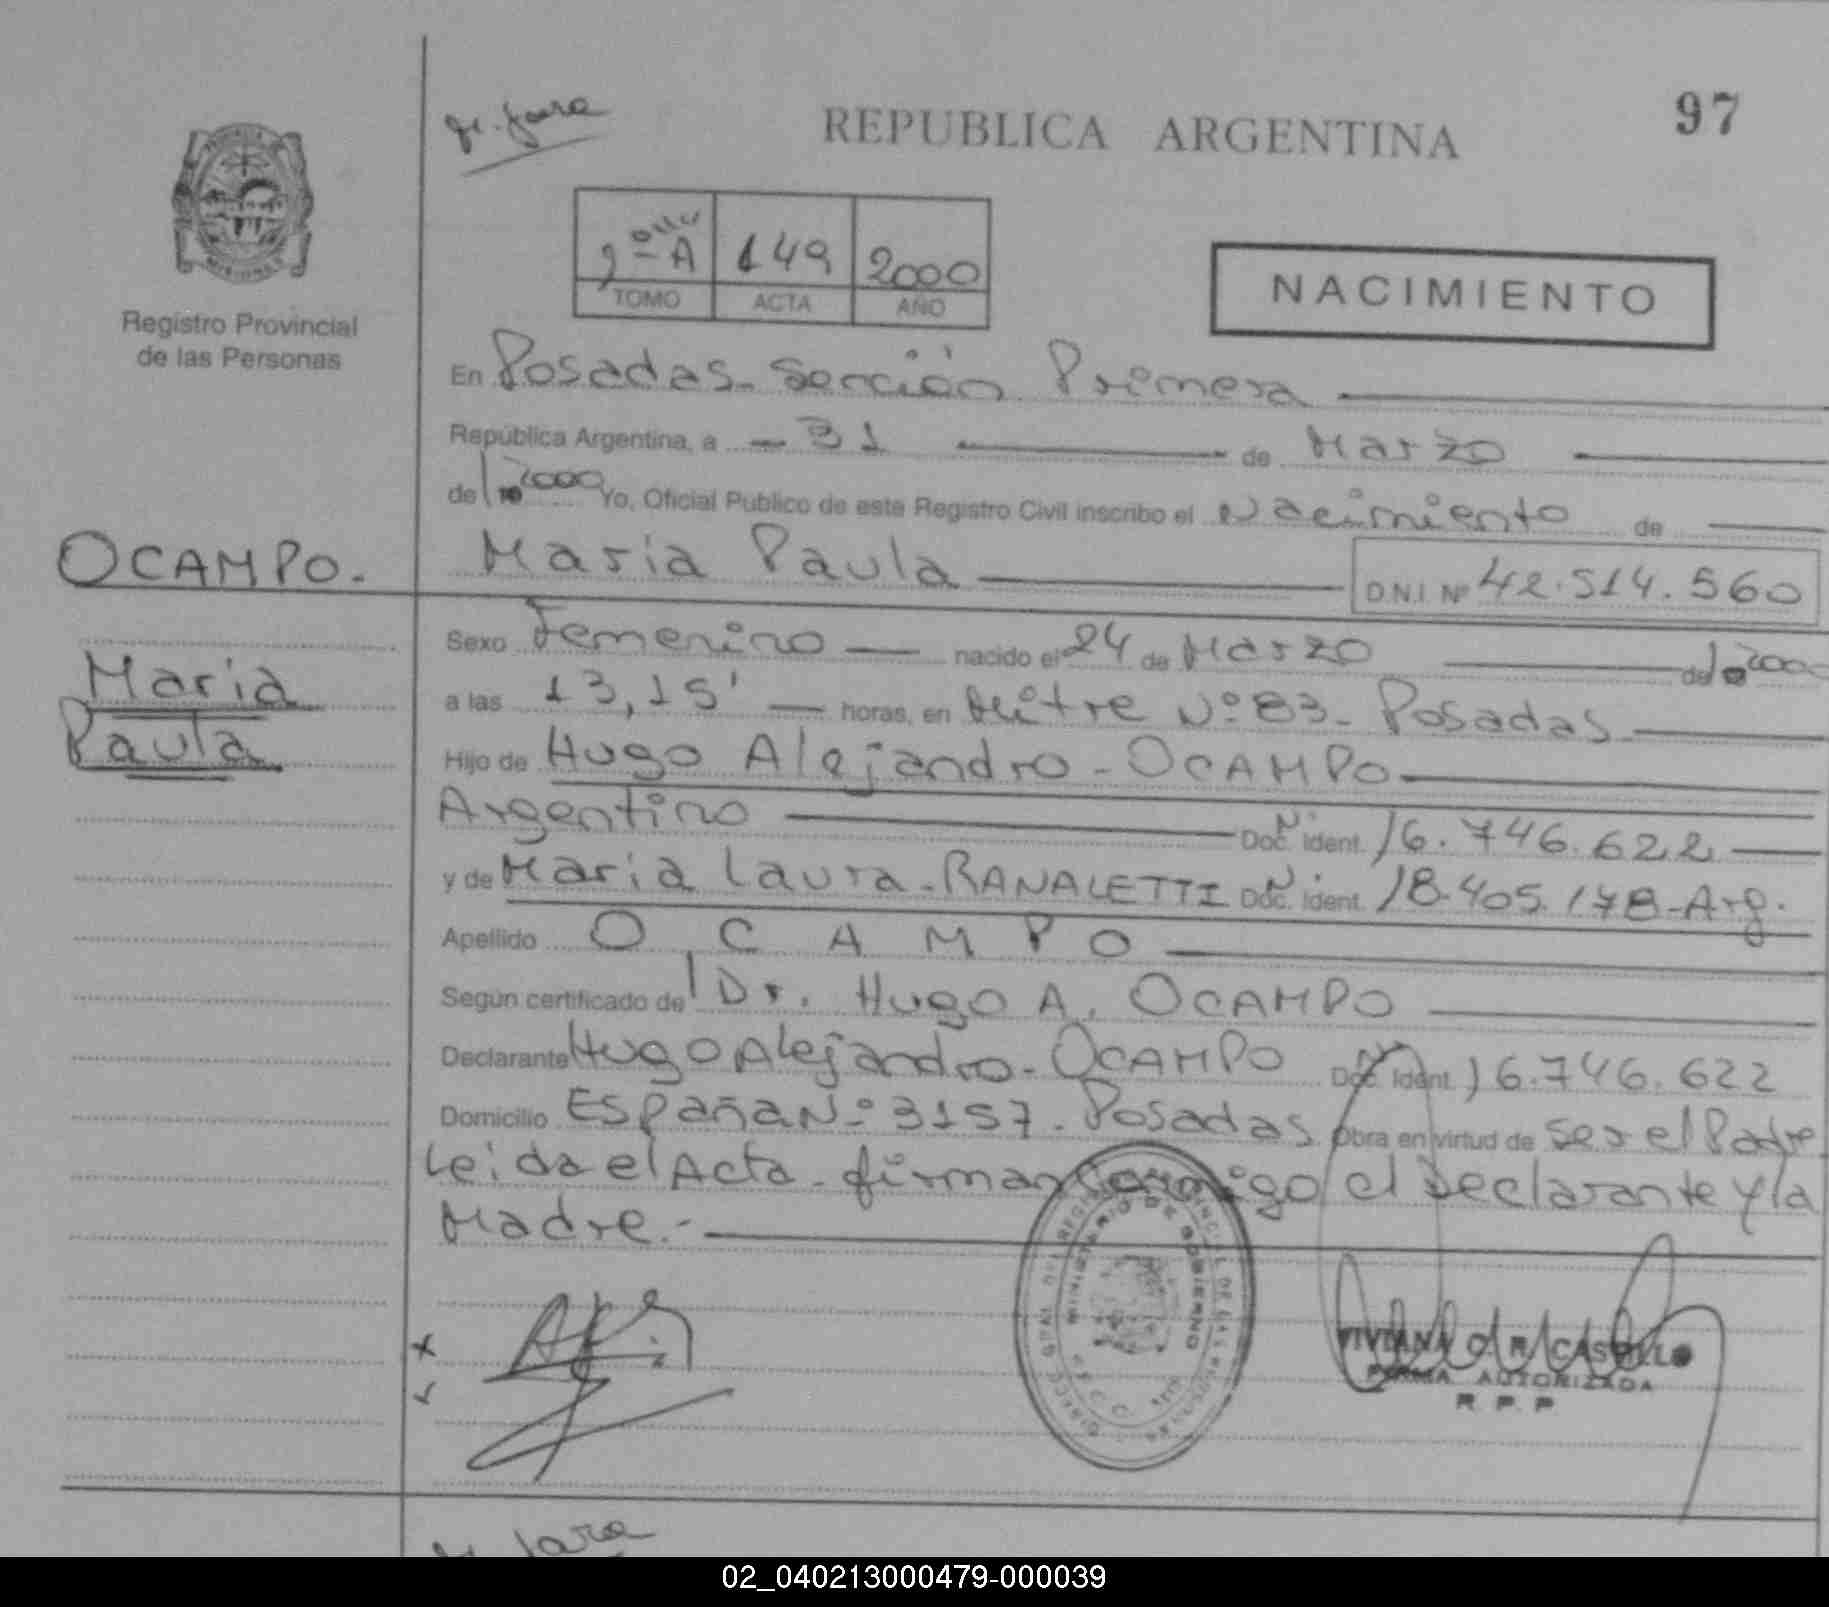 97
REPUBLICA ARGENTINA
Registro Provincial
de las Personas
TOMO ACTA 149 AÑO 2000
NACIMIENTO
En Posadas - Sección Primera
República Argentina, a - 31 de Marzo
de 2000 Yo, Oficial Publico de este Registro Civil inscribo el Nacimiento de
OCAMPO.
Maria Paula D.N.I. Nº 42.514.560
Maria
Paula
Sexo Femenino nacido el 24 de Marzo de 2000
a las 13,15' horas, en Mitre Nº 83 - Posadas
Hijo de Hugo Alejandro - OCAMPO
Argentino Doc. Ident. 16.746.622
y de Maria Laura - RANALETTI Doc. Ident. 18.405.178 - Arg.
Apellido OCAMPO
Según certificado de Dr. Hugo A. OCAMPO
Declarante Hugo Alejandro - OCAMPO Doc. Ident. 16.746.622
Domicilio España Nº 3157 - Posadas Obra en virtud de ser el Padre
Leida el Acta - firman conmigo el Declarante y la
Madre.-
MINISTERIO DE GOBIERNO
VIVIANA CASTILLO
FIRMA AUTORIZADA
R. P. P
02_040213000479-000039